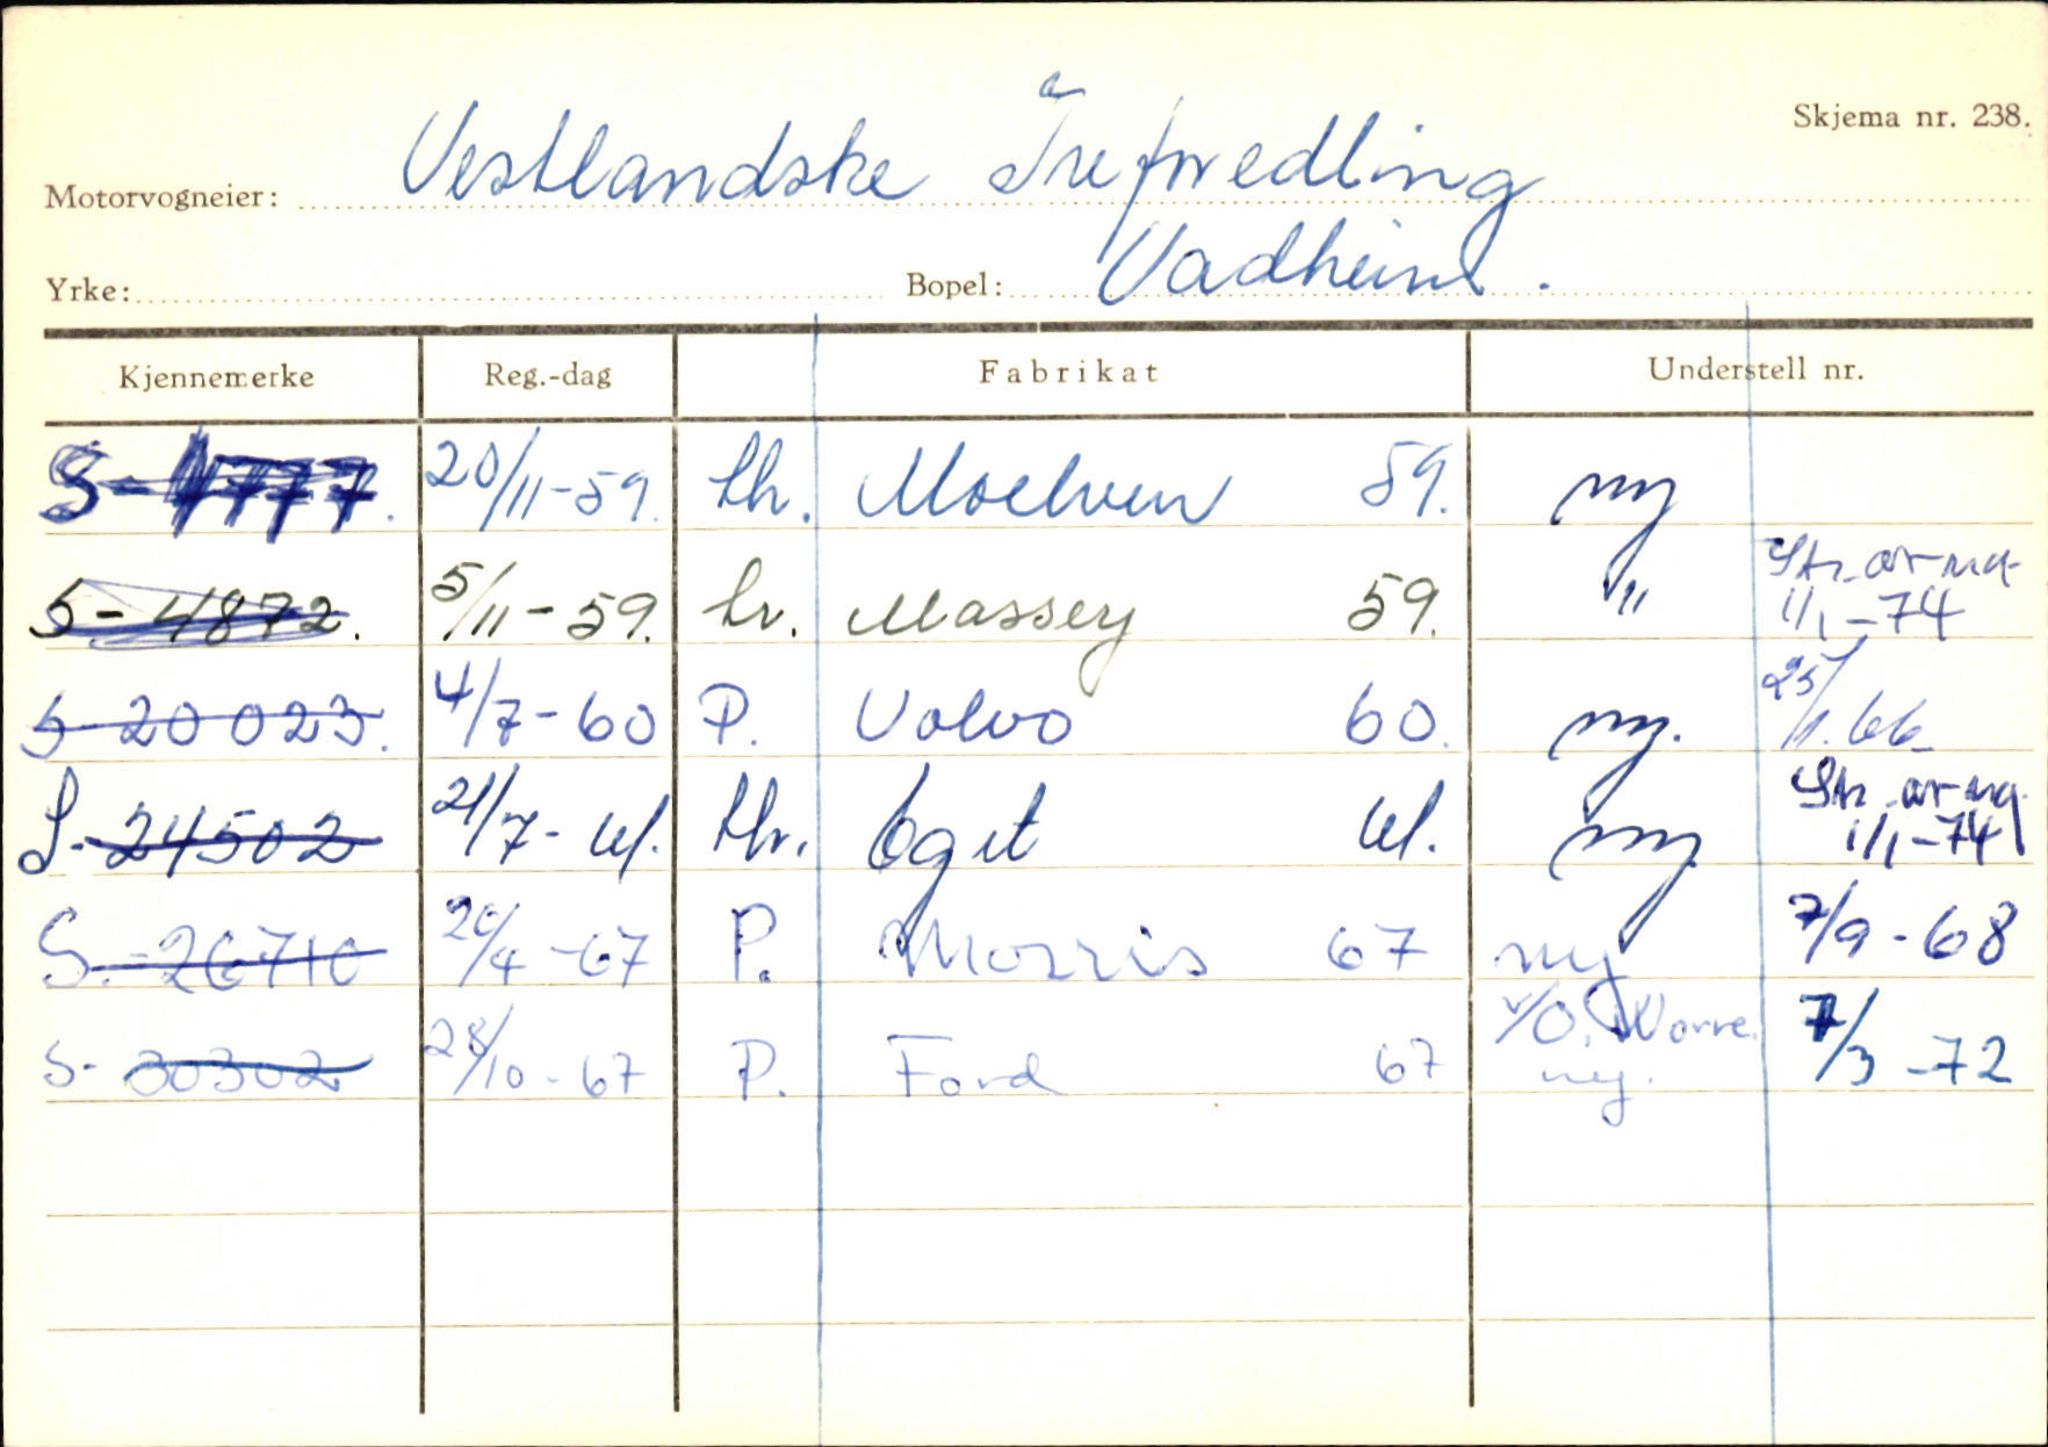 Skjema nr. 238.
Motorvogneier: Vestlandske Treforedling
Yrke: Bopel: Vadheim.
Kjennemerke Reg.-dag Fabrikat Understell nr.
S-4777. 20/11-59. thr. Moelven 59. ny
S-4872. 5/11-59. tr. Massey 59. " Str. av reg. 1/1-74
S-20023. 4/7-60 P. Volvo 60. ny. 25/1.66
S-24502 21/7-61. thr. Eget 61. ny 1/1-74
S.-26710 20/4-67 P. Morris 67 ny 7/9-68
v/O. Worre.
S-30302 28/10-67 P. Ford 67 ny. 7/3-72